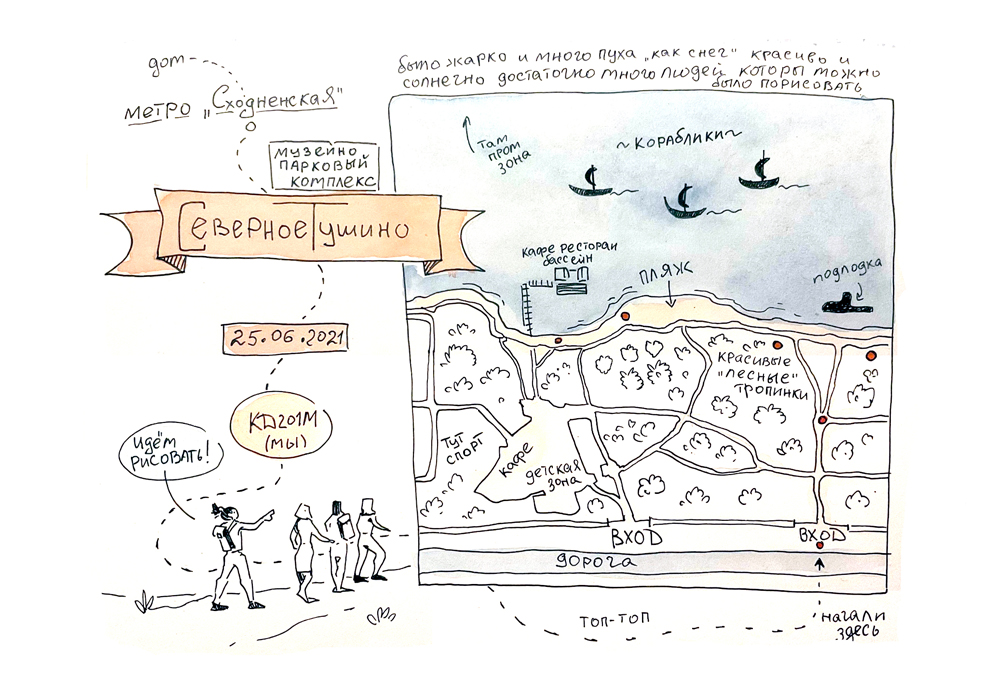 дом
метро „Сходненская"
музейно
парковый
комплекс
Северное Тушино
25.06.2021
КД201М
(мы)
идём
рисовать!
было жарко и много пуха „как снег" красиво и
солнечно достаточно много людей которы можно
было порисовать
там
пром
зона
~кораблики~
кафе ресторан
бассейн
пляж
подлодка
красивые
"лесные"
тропинки
тут
спорт
кафе
детская
зона
вход
вход
дорога
топ-топ
начали
здесь